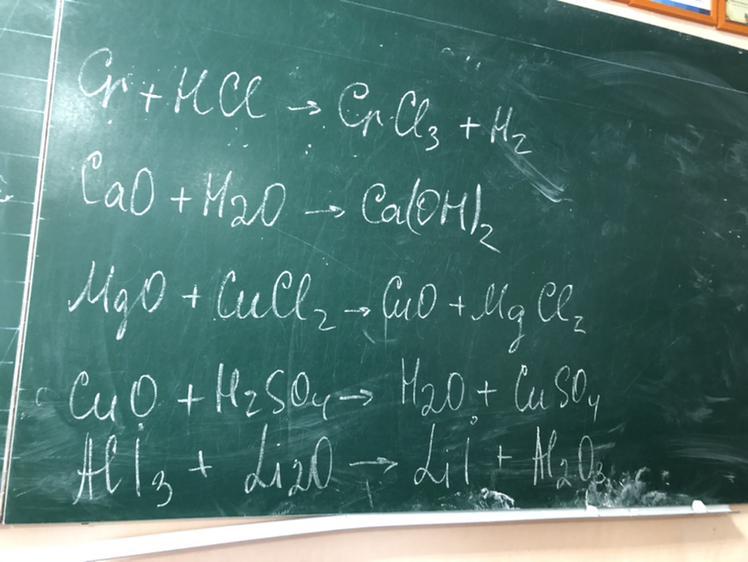 Cr + HCl → CrCl₃ + H₂
CaO + H₂O → Ca(OH)₂
MgO + CuCl₂ → CuO + MgCl₂
CuO + H₂SO₄ → H₂O + CuSO₄
AlI₃ + Li₂O → LiI + Al₂O₃